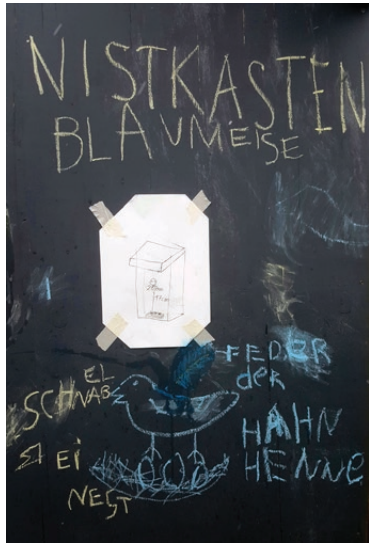 NISTKASTEN
BLAUMEISE
FEDER
der
EL
SCHNAB
HAHN
EI
HENNE
NEST